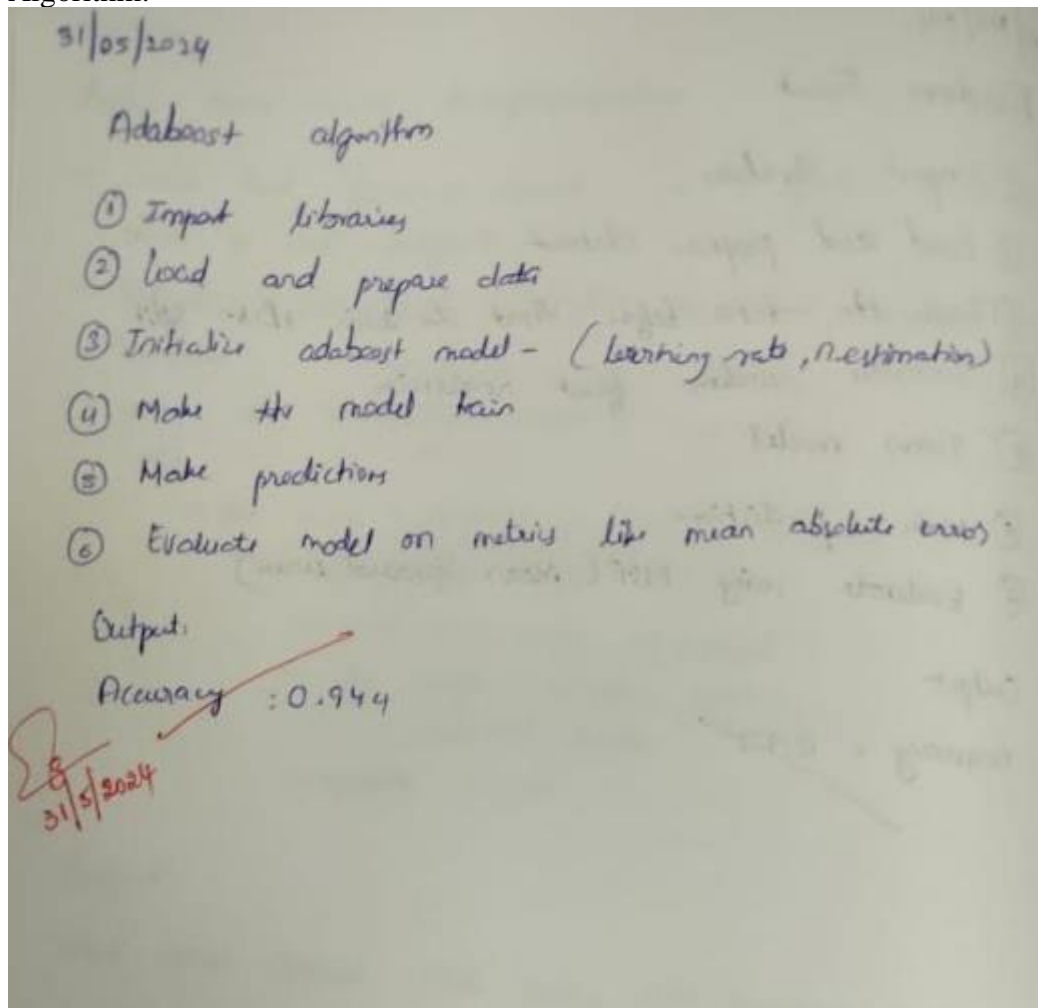 Algorithm:
31/05/2024
Adaboost algorithm
① Import libraries
② Load and prepare data
③ Initialize adaboost model - (learning rate, n-estimation)
④ Make the model train
⑤ Make predictions
⑥ Evaluate model on metrics like mean absolute error
Output:
Accuracy : 0.944
31/5/2024